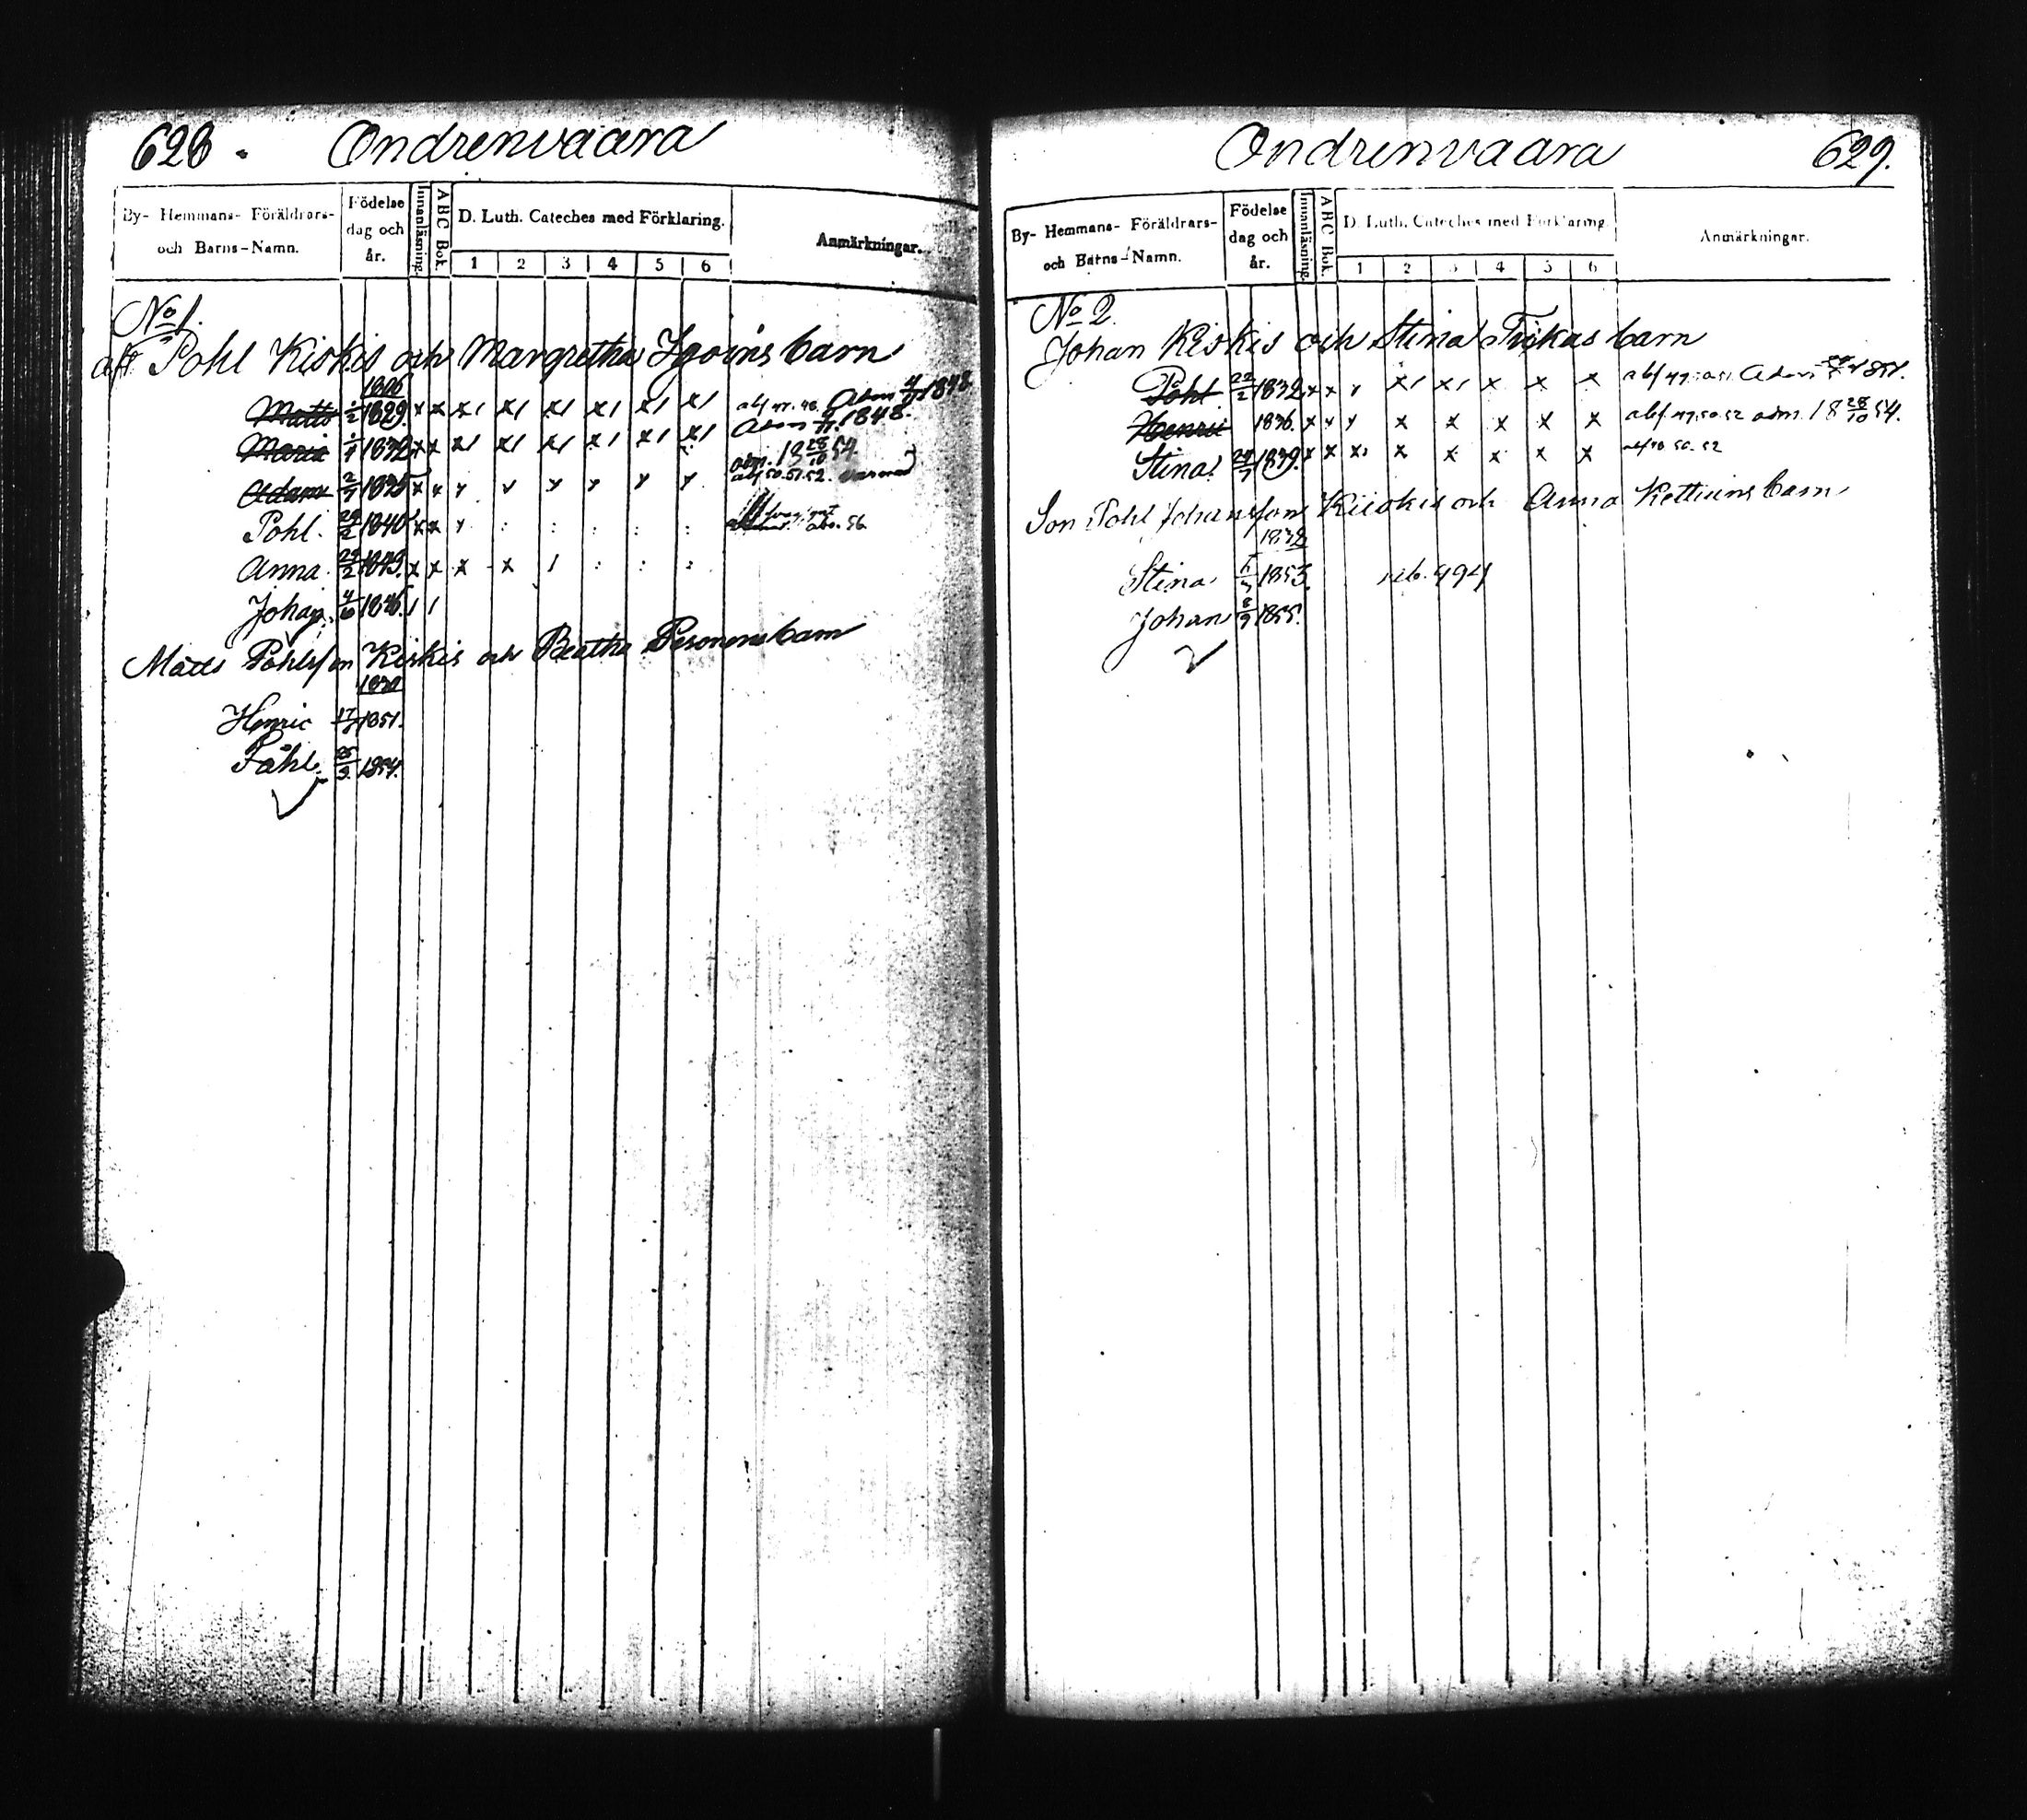 628. Ondrenvaara
By- Hemmans- Föräldrars- och Barns-Namn. Födelse dag och år. Innanläsning. ABC Bok. D. Luth. Cateches med Förklaring. Anmärkningar.
1 2 3 4 5 6
No 1.
Pohl Kiskis och Margretha barn
1806
Matts 1829. x x x/ x/ x/ x/ x/ x/ Adm 1848
Maria 1832 x x x/ x/ x/ x/ x/ x/ Adm 1848.
Adam 2/7 1835 x x adm. 18 28/10 54.
abf 50. 51. 52.
Pohl. 1840 x x
Anna 1843. x x x x /
Johan 1846. / /
Matts Pohlsson Kiskis och Beatha Pesonens barn
1830
Henric 1851.
Påhl. 1854.
Ondrenvaara 629.
By- Hemmans- Föräldrars- och Barns-Namn. Födelse dag och år. Innanläsning. ABC Bok. D. Luth. Cateches med Förklaring. Anmärkningar.
1 2 3 4 5 6
No 2.
Johan Kiskis och Stina barn
Pohl 22/2 1832 x x x/ x/ x x x Adm 1851.
Henric 1836. x x x x x x x abf 49. 50. 52 adm. 18 28/10 54.
Stina 1839. x x x x x x x 50. 52
Son Pohl Johansson Kiiskis och Anna barn
1832
Stina 1853.
Johan 8/9 1855.